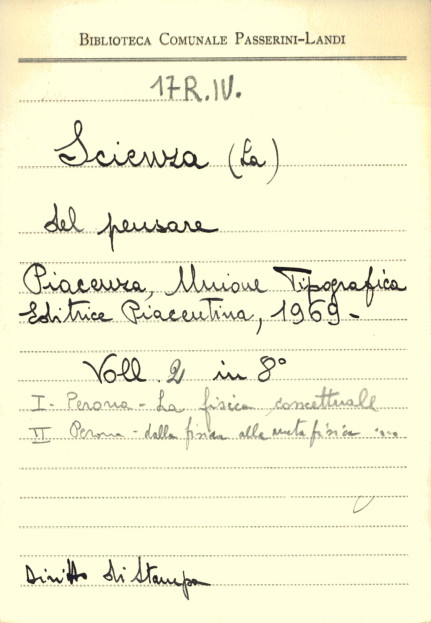 BIBLIOTECA COMUNALE PASSERINI-LANDI
17R.IV.
Scienza (La)
del pensare
Piacenza, Unione Tipografica
Editrice Piacentina, 1969-
Voll. 2 in 8°
I - Perona - La fisica concettuale
II Perona - dalla fisica alla metafisica ....
Diritto di Stampa